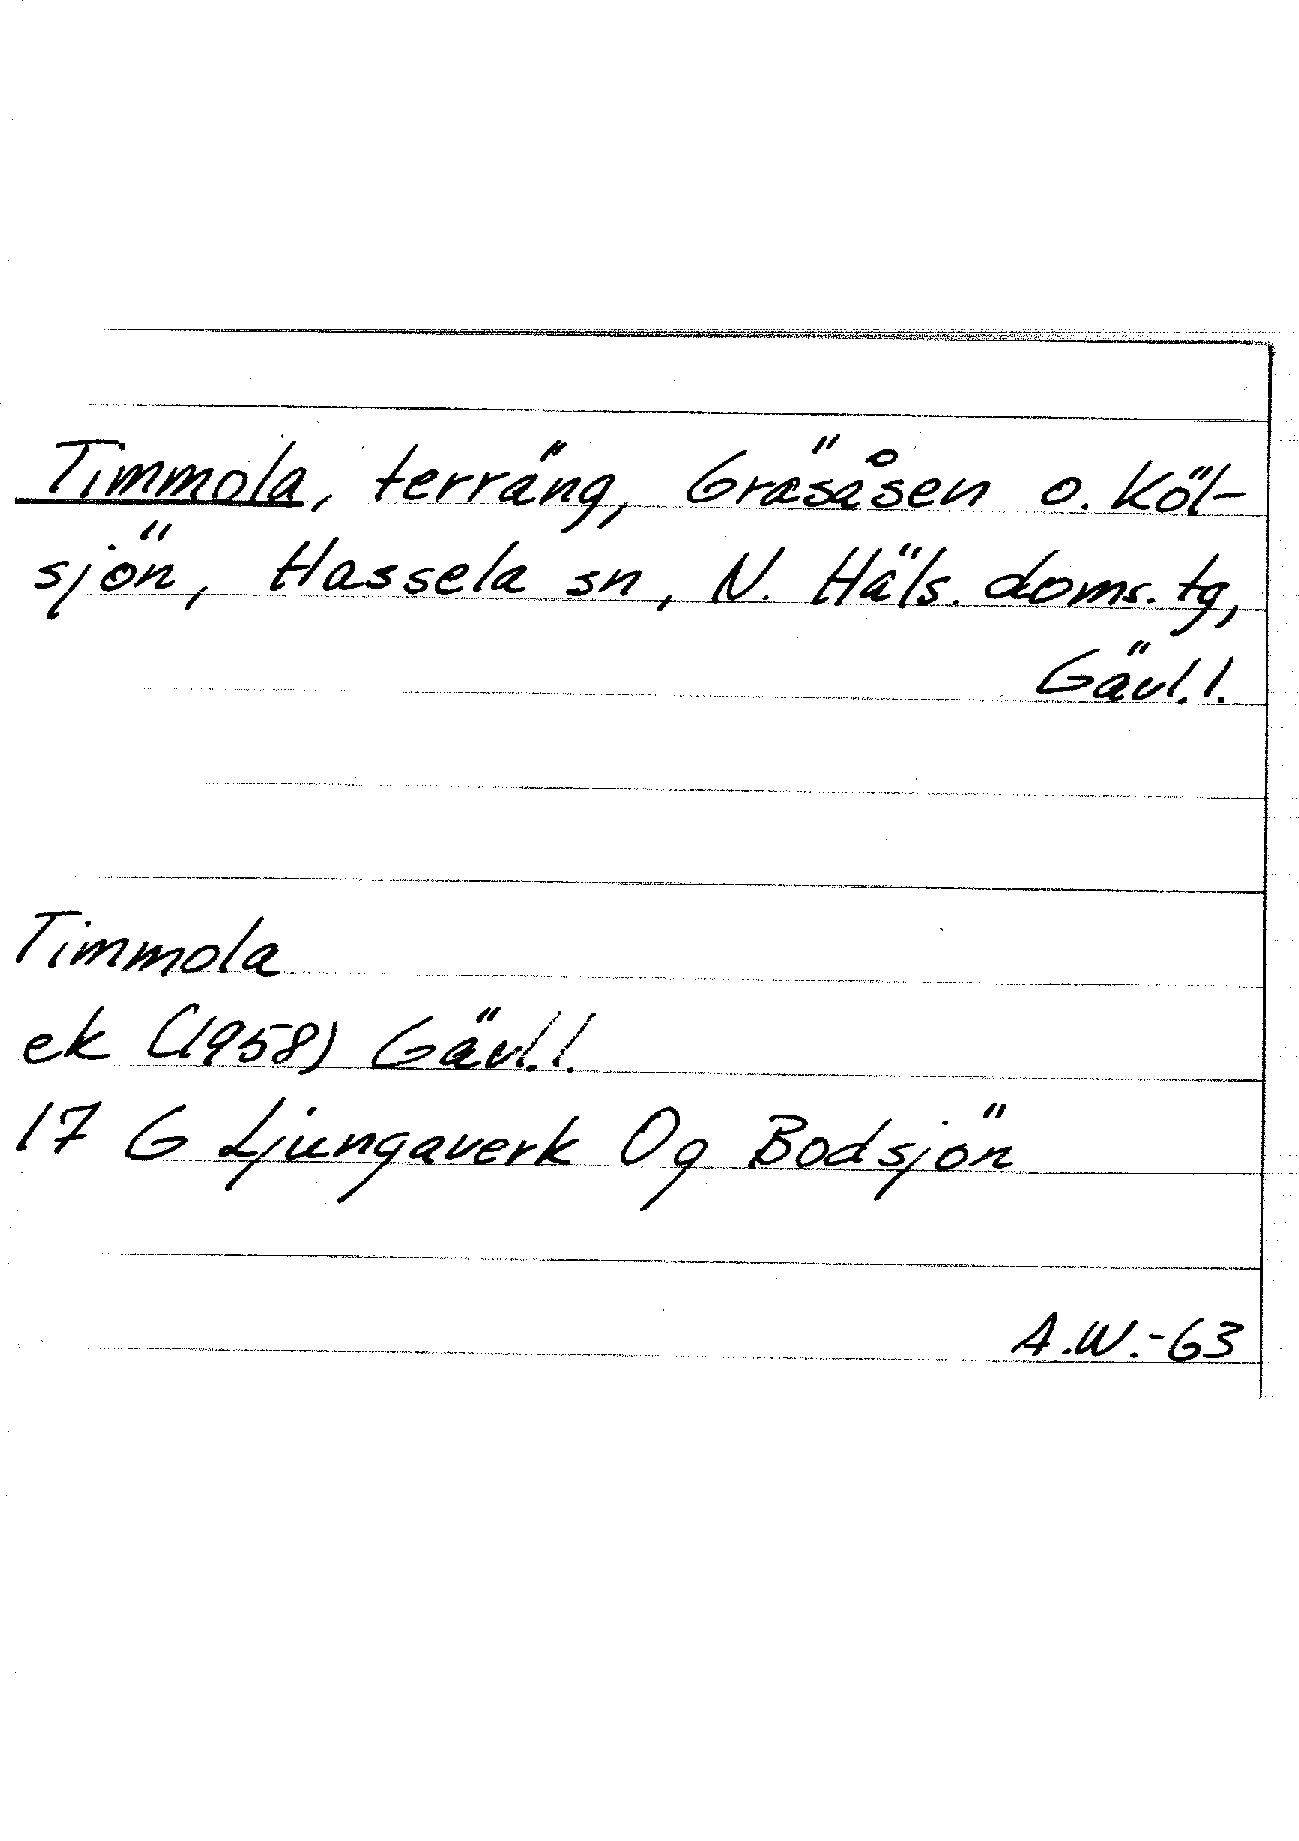 Timmola, terräng, Gräsåsen o. Köl-
sjön, Hassela sn, N. Häls. doms. tg,
Gävl. l.
Timmola
ek (1958) Gävl. l.
17 G Ljungaverk Og Bodsjön
A.W.-63